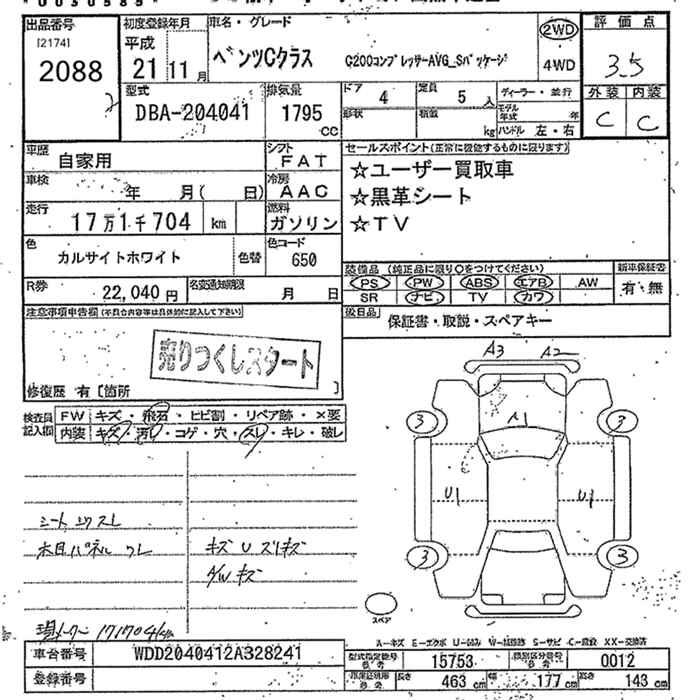 出品番号
[2174]
2088
初度登録年月
平成
21 11月
車名・グレード
ベンツCクラス C200コンプレッサーAVG_Sパッケージ
2WD
4WD
評価点
3.5
外装 内装
C C
型式
DBA-204041
排気量
1795 cc
ドア 4
定員 5人
形状
積載 kg
ディーラー・並行
モデル年式 年
ハンドル 左・右
車歴 自家用
シフト FAT
車検 年 月( 日)
冷房 AAC
走行 17万1千704 km
燃料 ガソリン
色 カルサイトホワイト 色替
色コード 650
R券 22,040円
名変通知期限 月 日
セールスポイント(正常に機能するものに限ります)
☆ユーザー買取車
☆黒革シート
☆TV
装備品 (純正品に限り○をつけてください)
PS PW ABS エアB AW
SR ナビ TV カワ
新車保証書
有・無
後日品 保証書・取説・スペアキー
注意事項申告欄(不具合内容等は具体的に記入して下さい)
売りつくしスタート
修復歴 有[箇所 ]
検査員記入欄
FW キズ・飛石・ヒビ割・リペア跡・×要
内装 キズ・汚レ・コゲ・穴・スレ・キレ・破レ
シート シワ スレ
木目パネル ワレ
キズ U スリキズ
A/W キズ
現メーター 171704km
A3 A2
A1
3 3
U1 U1
3 3
スペア
A-キズ E-エクボ U-凹み W-補修跡 S-サビ C-腐蝕 XX-交換済
車台番号 WDD2040412A328241
登録番号
型式指定番号 参考 15753
類別区分番号 参考 0012
長さ 463 cm
幅 177 cm
高さ 143 cm